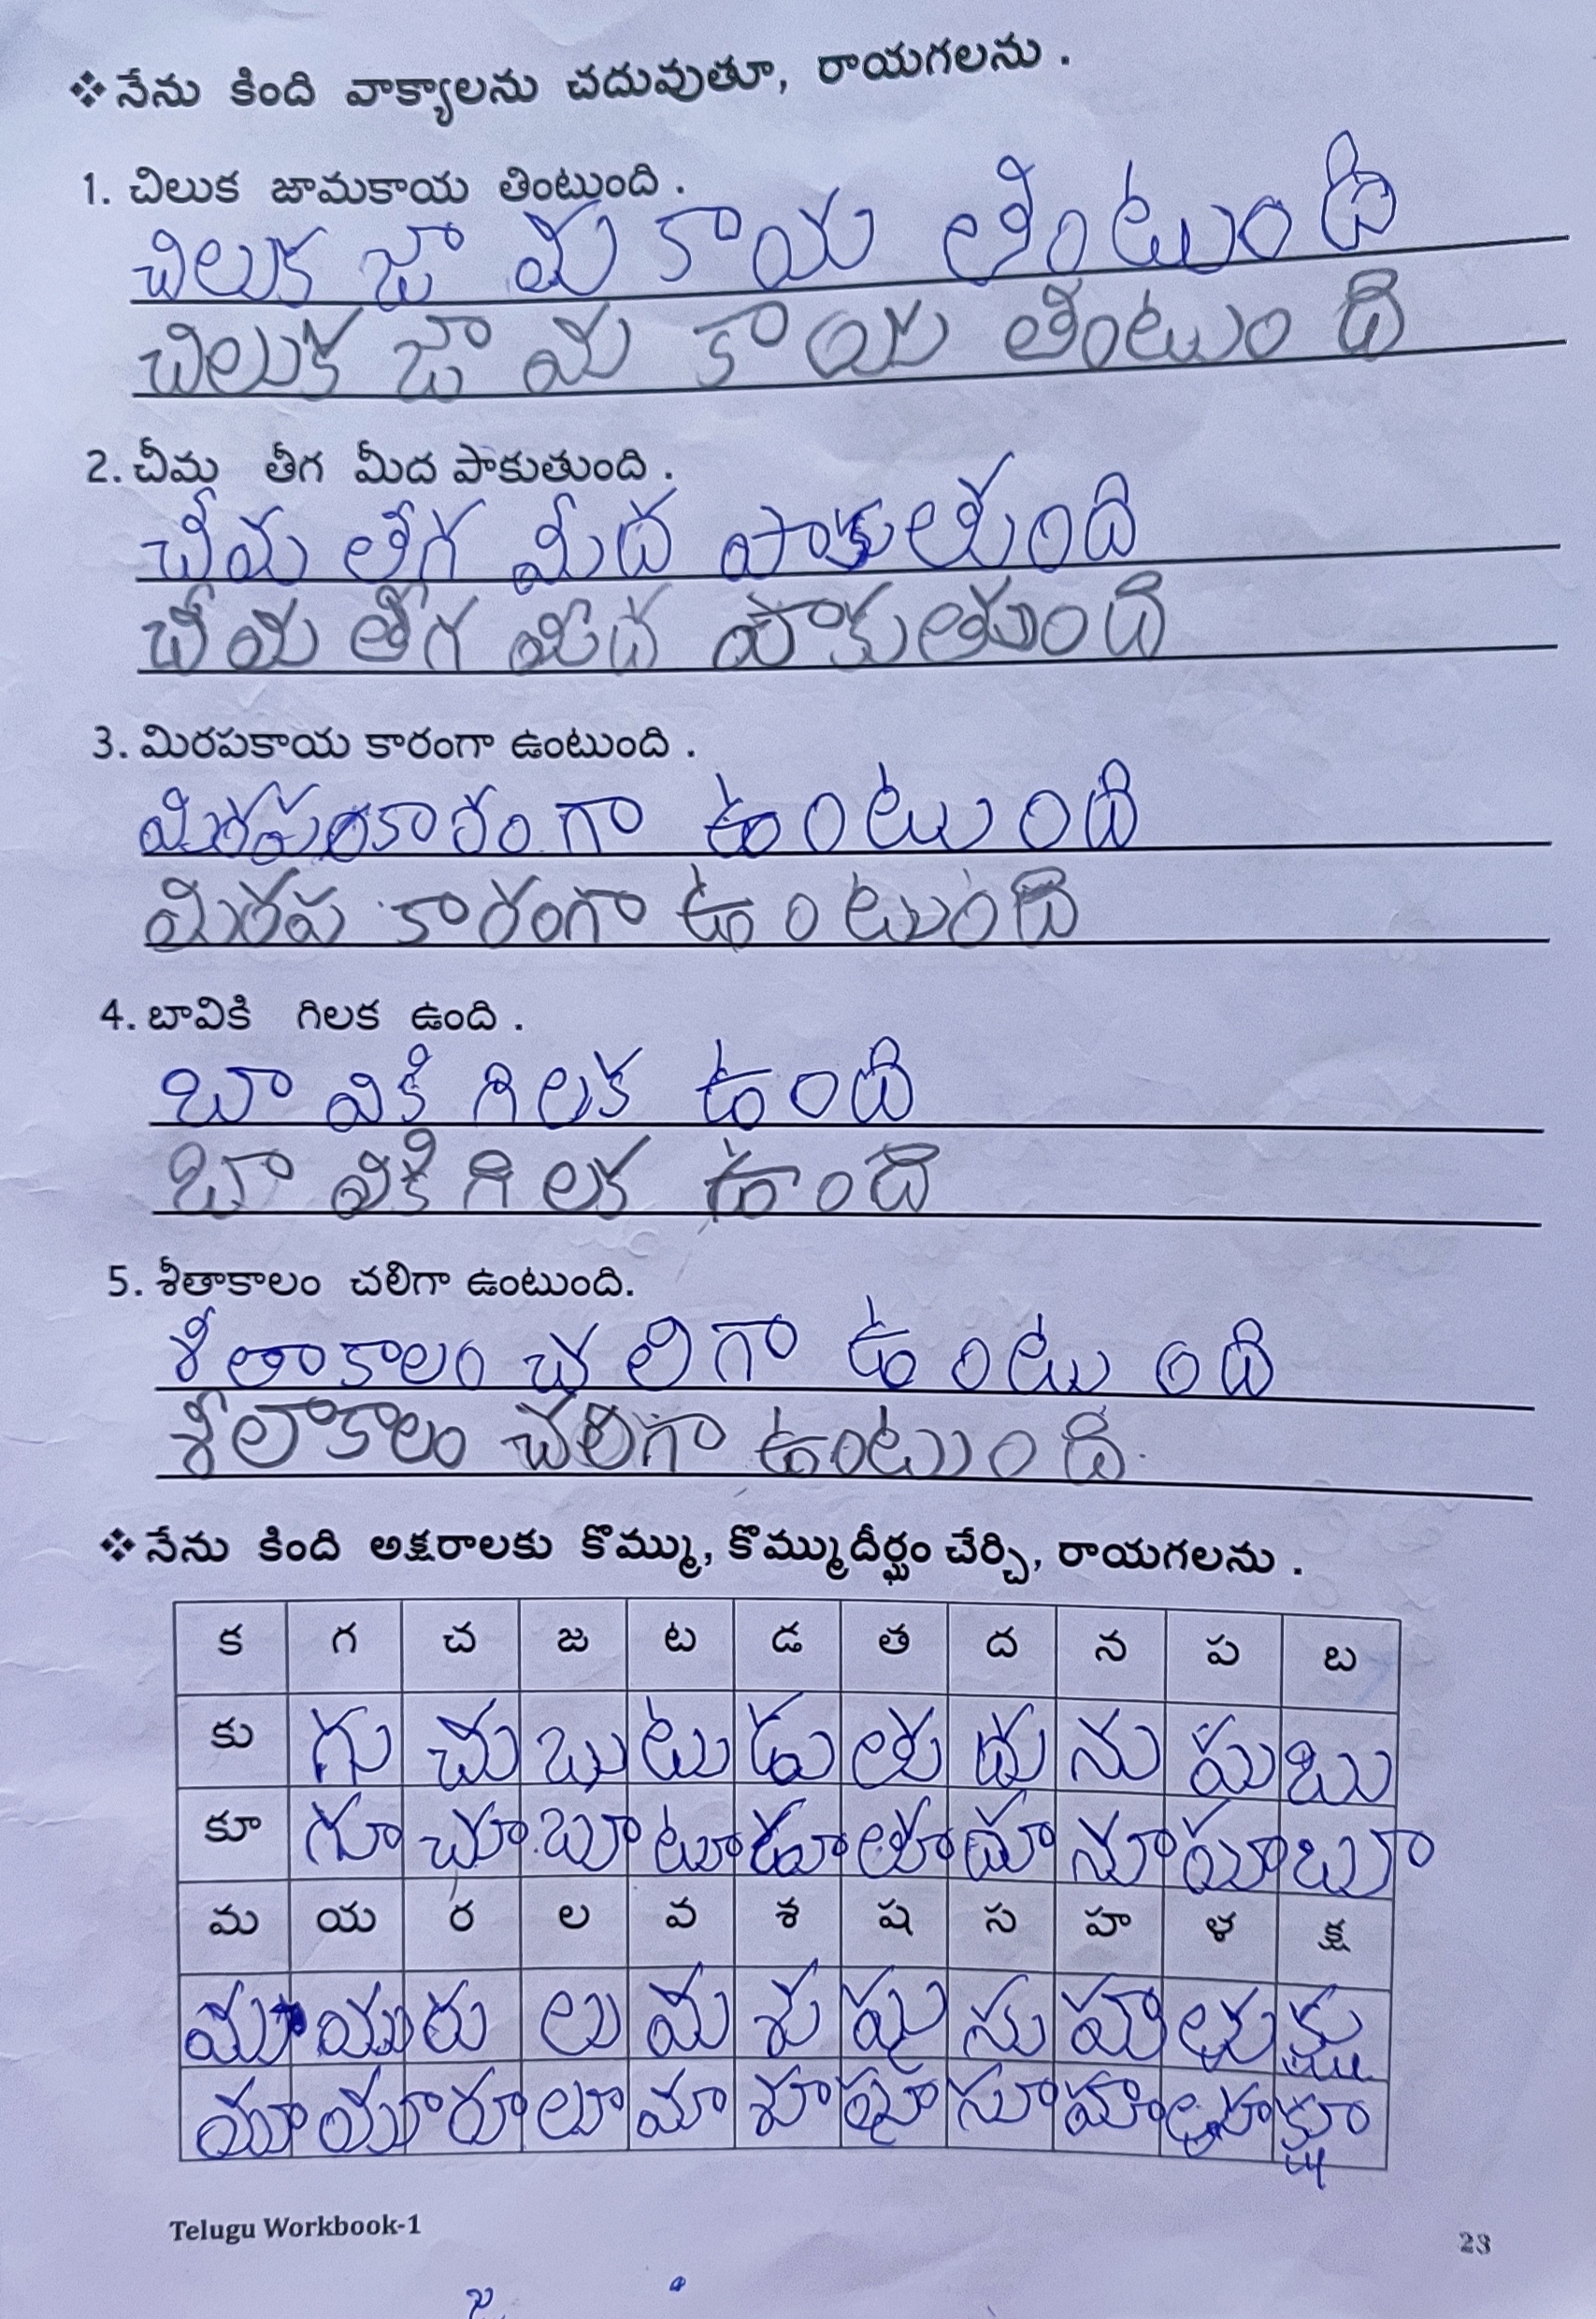 ❖ నేను కింది వాక్యాలను చదువుతూ, రాయగలను .
1. చిలుక జామకాయ తింటుంది .
చిలుక జా మ కాయ తింటుం ది
చిలుక జా మ కాయ తింటుం ది
2. చీమ తీగ మీద పాకుతుంది .
చీమ తీగ మీద పాకుతుంది
చీమ తీగ మీద పాకుతుంది
3. మిరపకాయ కారంగా ఉంటుంది .
మిరపకారం గా ఉంటుంది
మిరప కారంగా ఉంటుంది
4. బావికి గిలక ఉంది .
బా వికి గిలక ఉంది
బా వికి గిలక ఉంది
5. శీతాకాలం చలిగా ఉంటుంది.
శీతాకాలం చలిగా ఉంటుంది
శీలాకాలం చలిగా ఉంటుంది.
❖ నేను కింది అక్షరాలకు కొమ్ము, కొమ్ముదీర్ఘం చేర్చి, రాయగలను .
క గ చ జ ట డ త ద న ప బ
కు గు చు బు టు డు తు దు ను పు బు
కూ గూ చూ బూ టూ డూ తూ దూ నూ పూ బూ
మ య ర ల వ శ ష స హ ళ క్ష
ము యు రు లు వు శు షు సు హు ళు క్షు
మూ యూ రూ లూ వూ శూ షూ సూ హూ ళూ క్షూ
Telugu Workbook-1
23